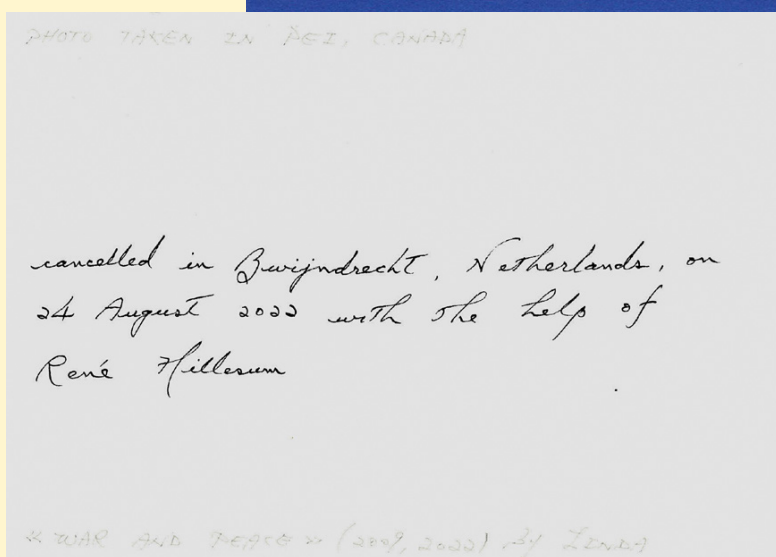 PHOTO TAKEN IN PEI, CANADA
cancelled in Bwijndrecht, Netherlands, on
24 August 2022 with the help of
René Hillesum
« WAR AND PEACE » (2009, 2022) by LINDA